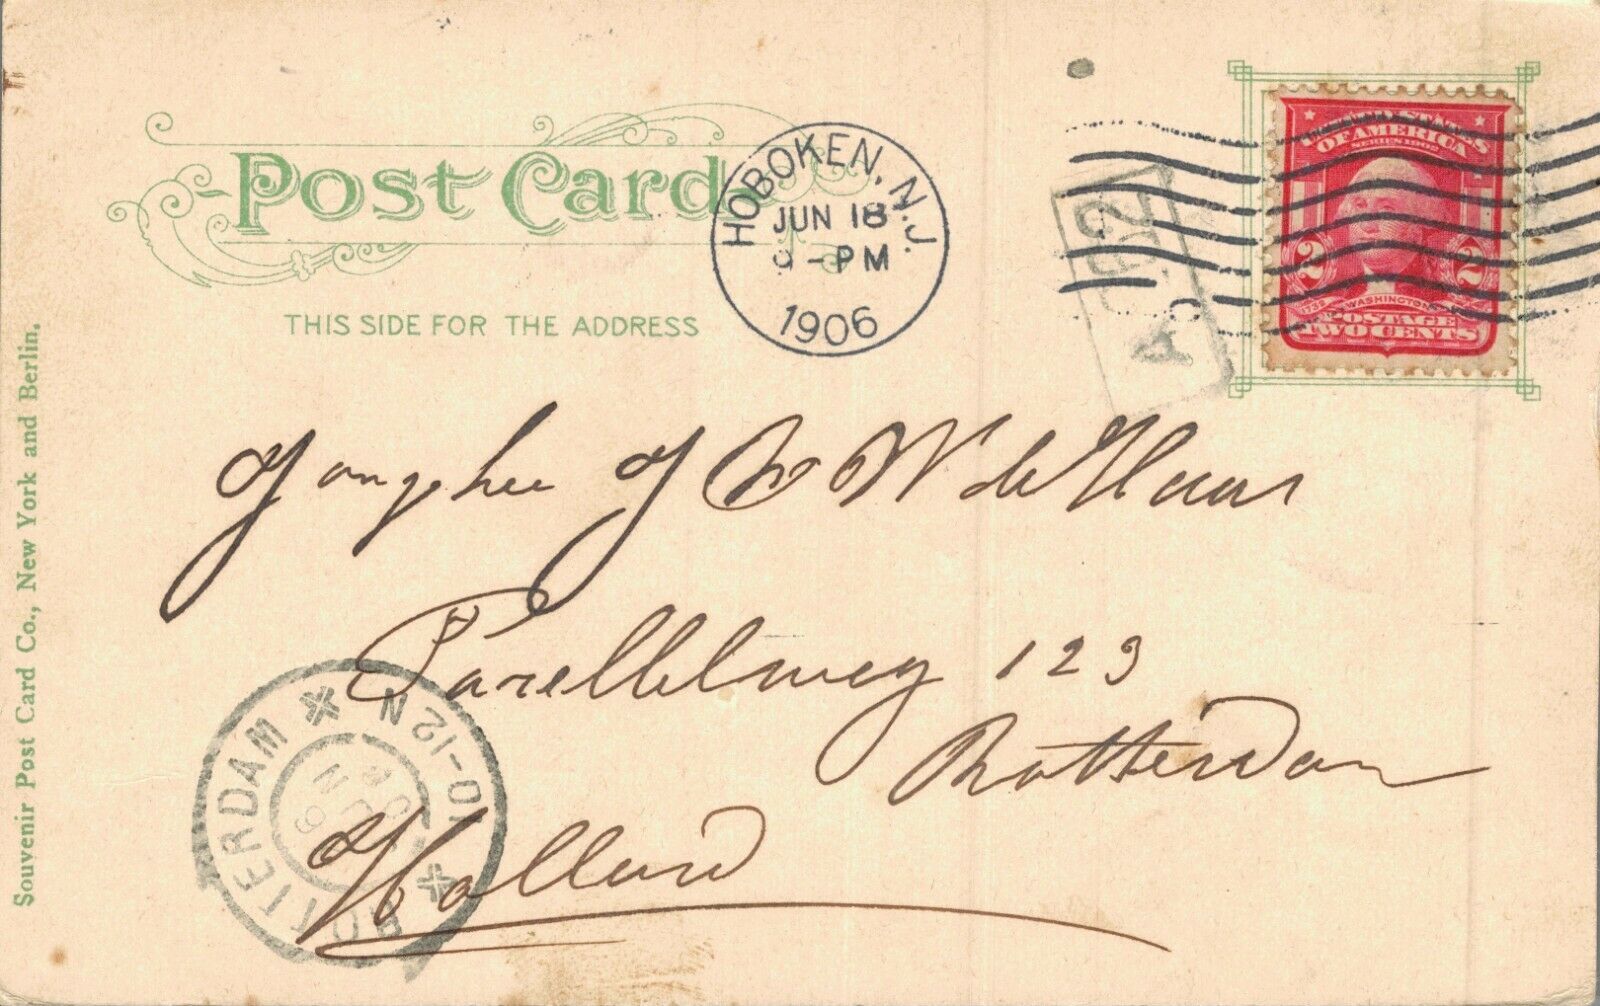 Post Card
THIS SIDE FOR THE ADDRESS
HOBOKEN, N.J.
JUN 18
-PM
1906
UNITED STATES
OF AMERICA
SERIES 1902
2 2
WASHINGTON
POSTAGE
TWO CENTS
de Haas
Parellelweg 123
Rotterdam
Holland
ROTTERDAM
10-12 N
Souvenir Post Card Co., New York and Berlin.